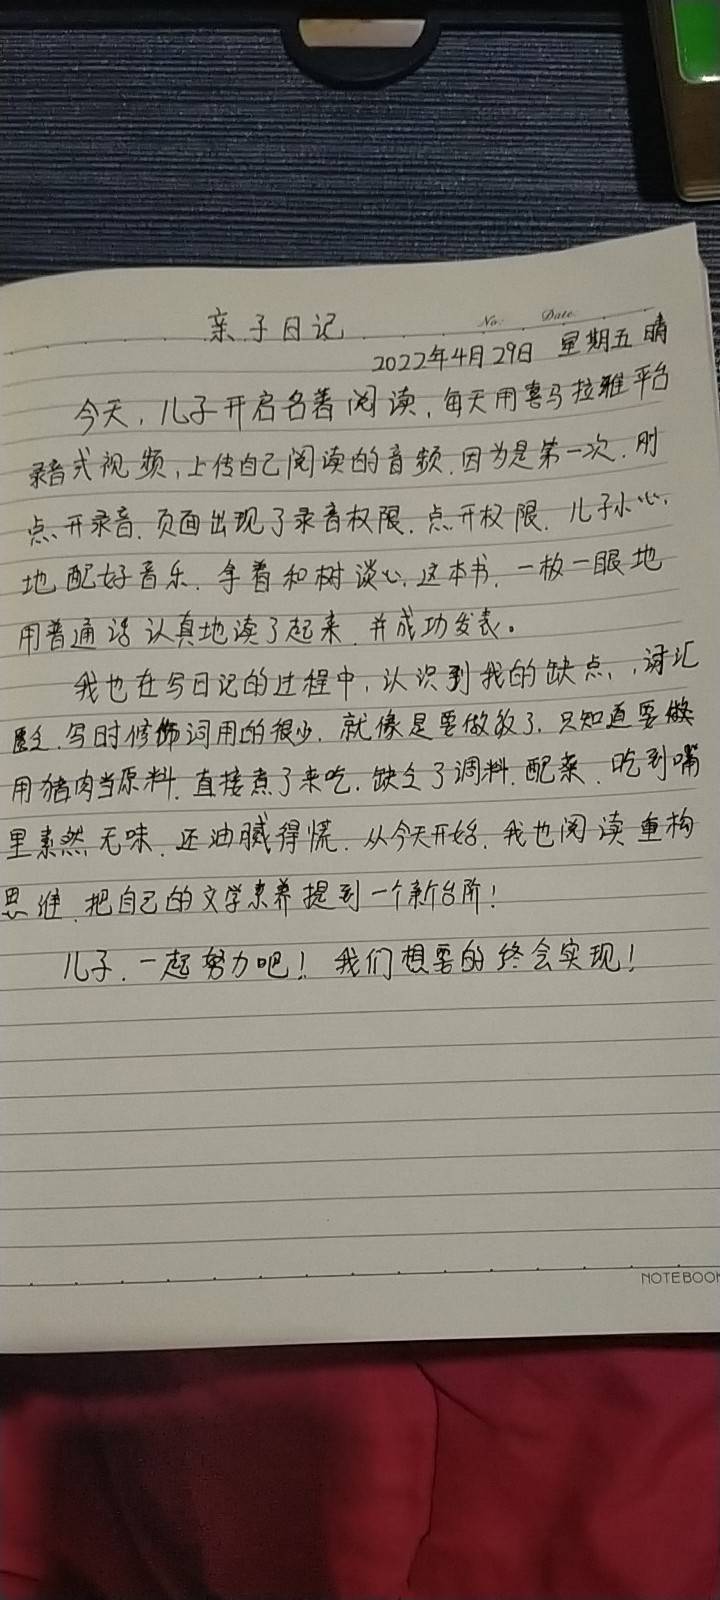 亲子日记
No. Date.
2022年4月29日 星期五 晴
今天，儿子开启名著阅读，每天用喜马拉雅平台
录音式视频，上传自己阅读的音频，因为是第一次，刚
点开录音，页面出现了录音权限，点开权限，儿子小心
地配好音乐，拿着和树谈心这本书，一板一眼地
用普通话认真地读了起来，并成功发表。
我也在写日记的过程中，认识到我的缺点，词汇
匮乏，写时修饰词用的很少，就像是要做饭了，只知道要做
用猪肉当原料，直接煮了来吃，缺乏了调料，配菜，吃到嘴
里素然无味，还油腻得慌，从今天开始，我也阅读重构
思维，把自己的文学素养提到一个新台阶！
儿子，一起努力吧！我们想要的终会实现！
NOTEBOOK